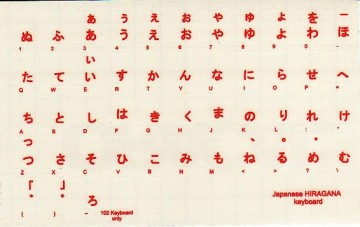 ぁ ぅ ぇ ぉ ゃ ゅ ょ を ー
ぬ ふ あ う え お や ゆ よ わ ほ
1 2 3 4 5 6 7 8 9 0 -
ぃ
た て い す か ん な に ら せ へ
Q W E R T Y U I O P =
ち と し は き く ま の り れ け
A S D F G H J K L ; '
っ 、 。 ・
つ さ そ ひ こ み も ね る め む
Z X C V B N M < > ? \
「 」
゛ ゜ ろ
{ } ~
102 Keyboard
only
Japanese HIRAGANA
keyboard